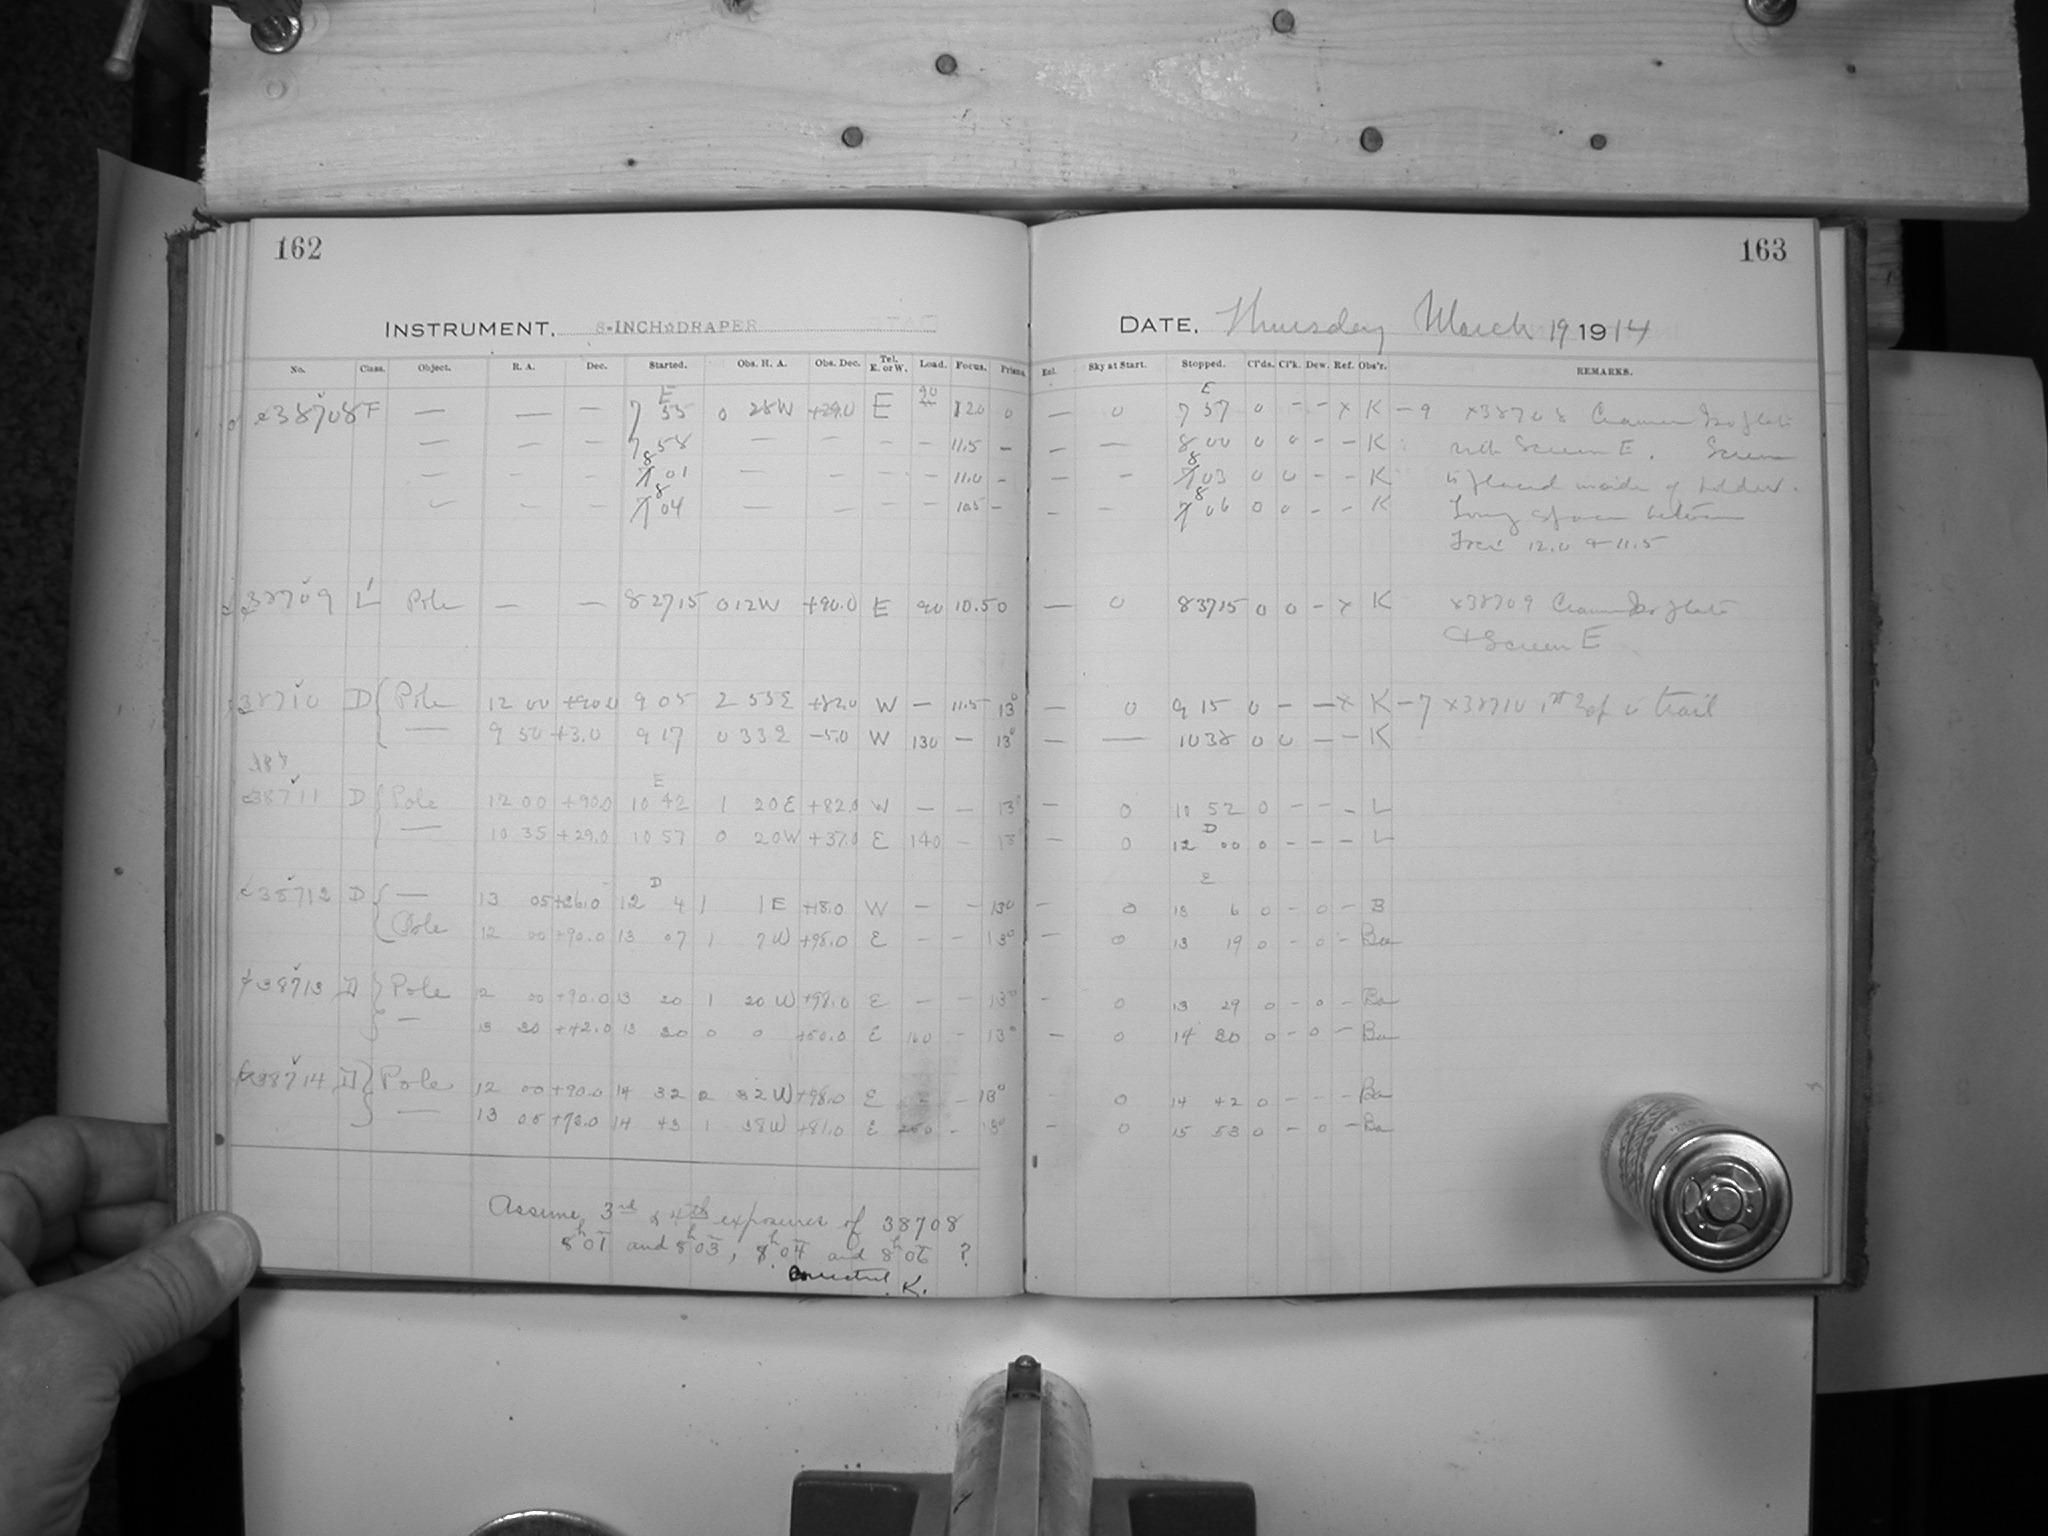 162
163
INSTRUMENT. 8-INCH DRAPER
DATE. Thursday March 19 1914
No. Class. Object. R. A. Dec. Started. Obs. H. A. Obs. Dec. Tel. E. or W. Load. Focus. Prism. Exl. Sky at Start. Stopped. Cl'ds. Cl'k. Dew. Ref. Obs'r. REMARKS.
E E
c38708 F — — — 7 55 0 28W +29.0 E 90 12.0 0 — 0 7 57 0 - - x K - 9 x38708 Cramer Iso plate
— — — 7 58 — — — — 11.5 — — — 8 00 0 0 - - K with Screen E. Screen
— — — 8 01 — — — — 11.0 - — — 8 03 0 0 - - K is placed inside of holder.
— — — 8 04 — — — — 10.5 - — — 8 06 0 0 - - K Long space between
Foci 12.0 & 11.5
c38709 L Pole — — 8 27 15 0 12W +90.0 E 90 10.5 0 — 0 8 37 15 0 0 - x K x38709 Cramer Iso plate
& Screen E
38710 D Pole 12 00 +90.0 9 05 2 55E +82.0 W — 11.5 13° — 0 9 15 0 - — x K - 7 x38710 1st
— 9 50 +3.0 9 17 0 33E -5.0 W 130 — 13° — — 10 38 0 0 — - K
E
c38711 D Pole 12 00 +90.0 10 42 1 20E +82.0 W — — 13° — 0 10 52 0 - - - L
— 10 35 +29.0 10 57 0 20W +37.0 E 140 - 13° — 0 12 00 0 - - - L
D
D E
c38712 D — 13 05 +26.0 12 4 1 1E +18.0 W — - 13° — 0 13 6 0 - 0 - B
Pole 12 00 +90.0 13 07 1 7W +98.0 E — - 13° — 0 13 19 0 - 0 - Ba
c38713 D Pole 12 00 +90.0 13 20 1 20W +98.0 E — - 13° - 0 13 29 0 - 0 - Ba
— 13 20 +42.0 13 20 0 0 +50.0 E 160 - 13° — 0 14 30 0 - 0 - Ba
c38714 D Pole 12 00 +90.0 14 32 2 32W +98.0 E - 13° - 0 14 42 0 - - - Ba
— 13 05 +73.0 14 43 1 38W +81.0 E - 13° - 0 15 53 0 - 0 - Ba
Assume 3rd & 4th exposures of 38708
8h 01m and 8h 03m, 8h 04m and 8h 06m ?
Corrected. K.